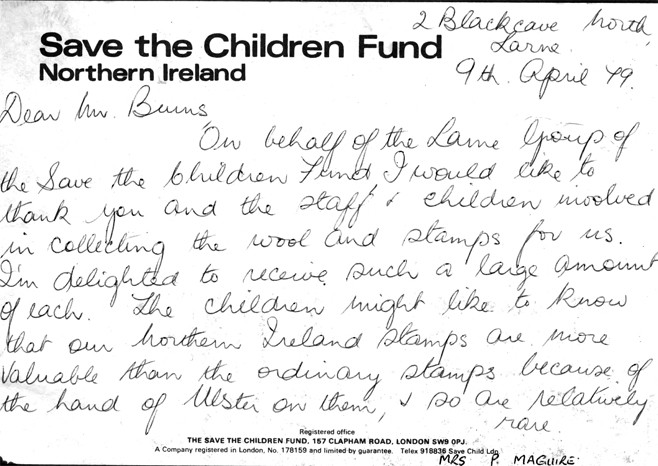 Save the Children Fund
Northern Ireland
2 Blackcave North,
Larne.
9th. April 79.
Dear Mr. Burns,
On behalf of the Larne Group of
the Save the Children Fund I would like to
thank you and the staff & children involved
in collecting the wool and stamps for us.
I'm delighted to receive such a large amount
of each. The children might like to know
that our Northern Ireland stamps are more
valuable than the ordinary stamps because of
the hand of Ulster on them, & so are relatively
rare.
Registered office
THE SAVE THE CHILDREN FUND, 157 CLAPHAM ROAD, LONDON SW9 0PJ.
A Company registered in London, No. 178159 and limited by guarantee. Telex 918836 Save Child Ldn
MRS P. MAGUIRE.